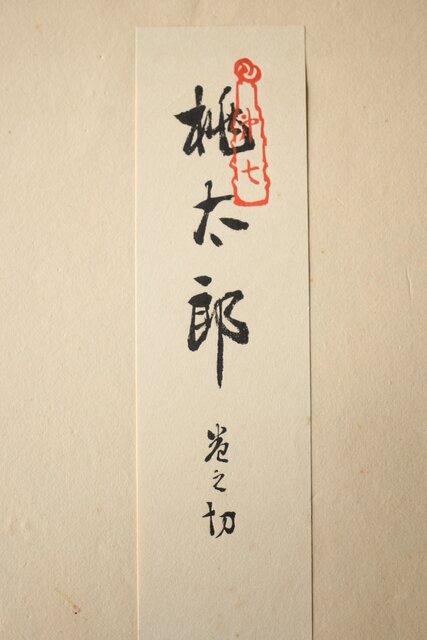 桃太郎
巻之切
七